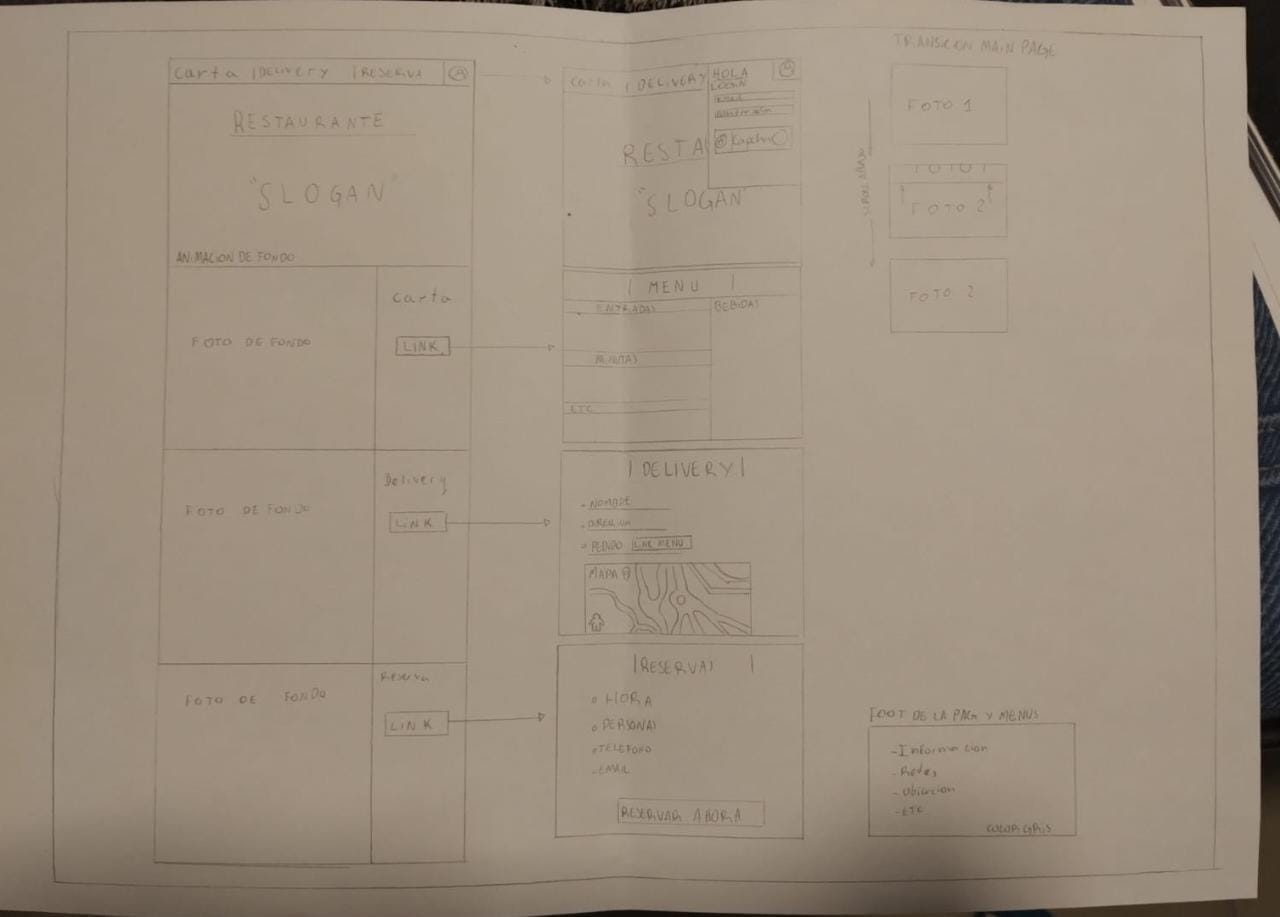 Carta | DELIVERY | RESERVA
RESTAURANTE
"SLOGAN"
ANIMACION DE FONDO
FOTO DE FONDO
Carta
LINK
FOTO DE FONDO
Delivery
LINK
FOTO DE FONDO
Reserva
LINK
Carta | DELIVERY
HOLA
LOGIN
RESTA
"SLOGAN"
| MENU |
ENTRADAS
BEBIDAS
MINUTAS
ETC
| DELIVERY |
- NOMBRE
- DIRECCION
- PEDIDO LINK MENU
MAPA
| RESERVAS |
o HORA
o PERSONAS
o TELEFONO
- EMAIL
RESERVAR AHORA
TRANSICION MAIN PAGE
FOTO 1
FOTO 1
FOTO 2
FOTO 2
FOOT DE LA PAG Y MENUS
- Informacion
- Redes
- Ubicacion
- ETC
COLOR GRIS